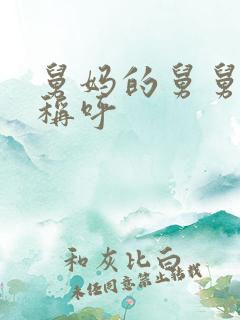 舅妈的舅舅
稱呼
和灰比白
未经同意禁止转载